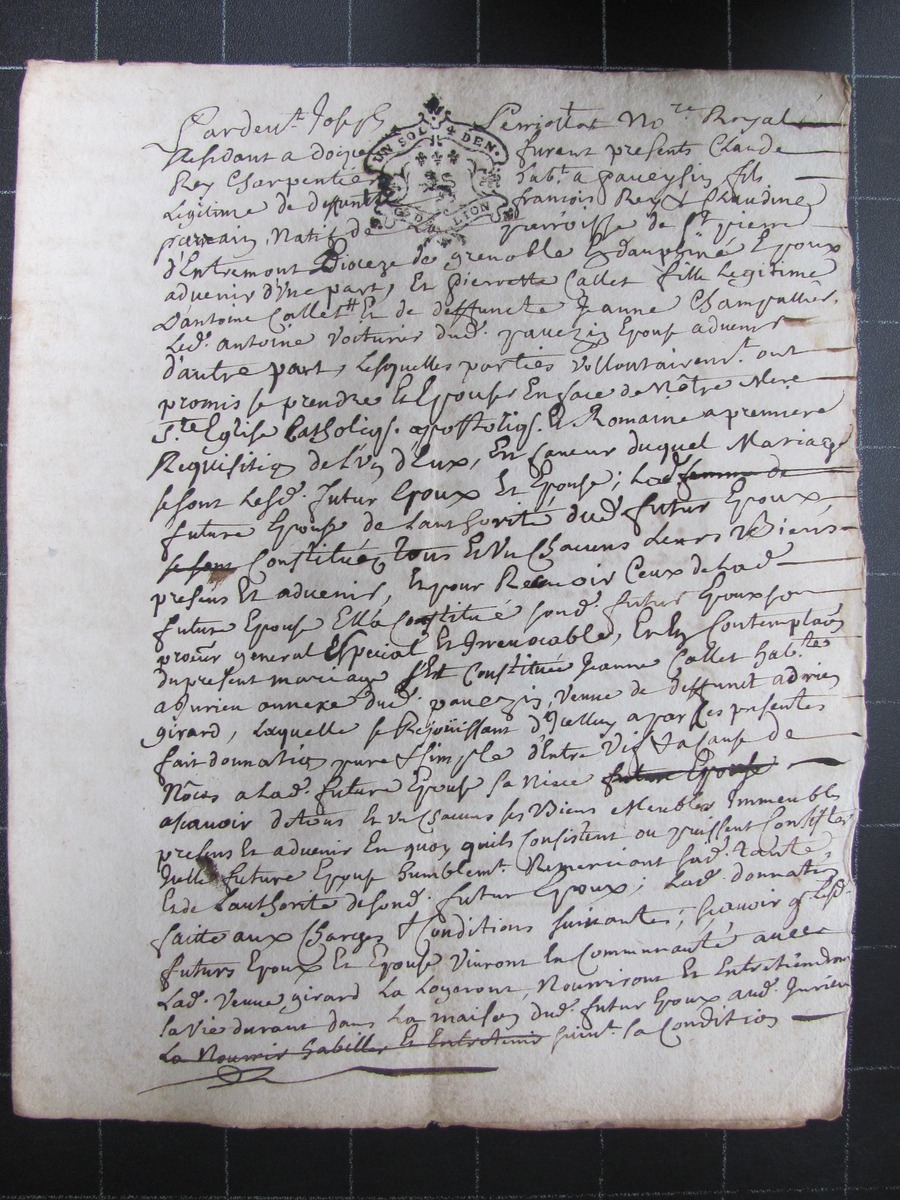 Pardevt. Joseph Perriollat Nore. Royal
Residant a doizieu furent presents Claude
Rey Charpentier habt. a paveysin fils
Legitime de deffunt francois Rey & Claudine
Natif de La parroisse de St. pierre
d'Entremont Dioceze de grenoble En dauphiné Epoux
advenir d'Une part, Et pierrette Callet fille Legitime
D'antoine Callet Et de deffuncte Jeanne Champallier,
Led. antoine Voiturier dud. pavezin Epouse advenir
d'autre part, Lesquelles parties Vollontairement. ont
promis se prendre Et Epouser En face de Nôtre Mere
Ste. Eglise Catholiqe. apostoliqe. Et Romaine a premiere
Requisition de L'Un d'Eux, En faveur duquel Mariage
se sont Lesd. futur Epoux Et Epouse; Lad. femme de
future Epouse de Lauthorité dud. futur Epoux
se sont Constitués tous Et Un Chacuns Leurs Biens
presens Et advenir, Et pour Recevoir Ceux de Lad.
future Epouse Ella Constitué sond. futur Epoux son
procur general Espécial Et Irrevocable, En En Contemplaon
du present mariage s'Est Constituée Jeanne Callet habte.
a Jurieu annexe dud. pavezin, veuve de deffunt adrien
girard, Laquelle se Rejoüissant d'Icelluy a par Ces presentes
fait donnation pure & simple d'Entre Vifs & a Cause de
Nôces a Lad. future Epouse sa Niece future Epouse
ascavoir de tous Et Un Chacuns ses Biens Meubles Immeubles
presens Et advenir En quoy quils Consistent ou puissent Consister
Icelle future Epouse humblemt. Remerciant sad. tante
Et de Lauthorité de sond. futur Epoux; Lad. donnation
faitte aux Charges & Conditions suivantes; scavoir q. Lesd.
futurs Epoux Et Epouse Vivront En Communauté avec
Lad. Veuve girard La Logeront, Nourriront Et Entretiendront
sa Vie durant dans La maison dud. futur Epoux aud. Jurieu
La Nourrir habiller Et Entretenir suivt. sa Condition
UN SOL 4 DEN.
DE LION